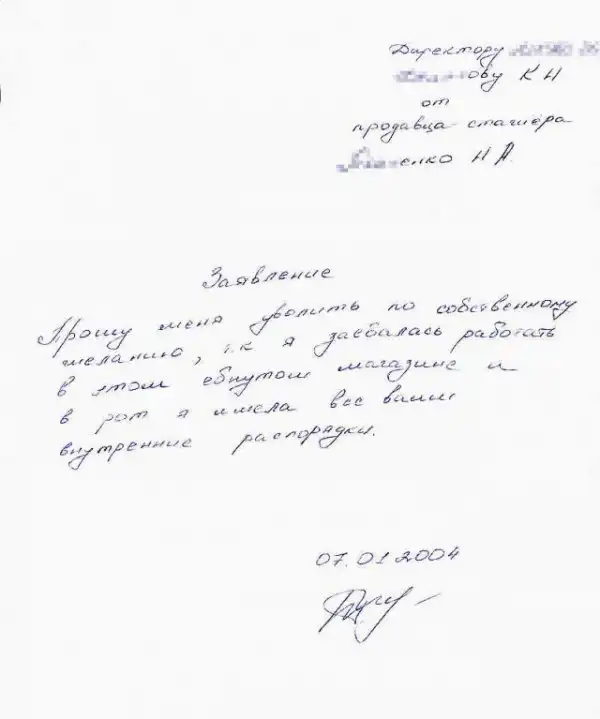 Директору
ову К Н
от
продавца стагиёра
енко Н А.
Заявление
Прошу меня уволить по собственному
желанию, т.к я заебалась работать
в этом ебнутом магазине и
в рот я имела все ваши
внутренние распорядки.
07.01 2004